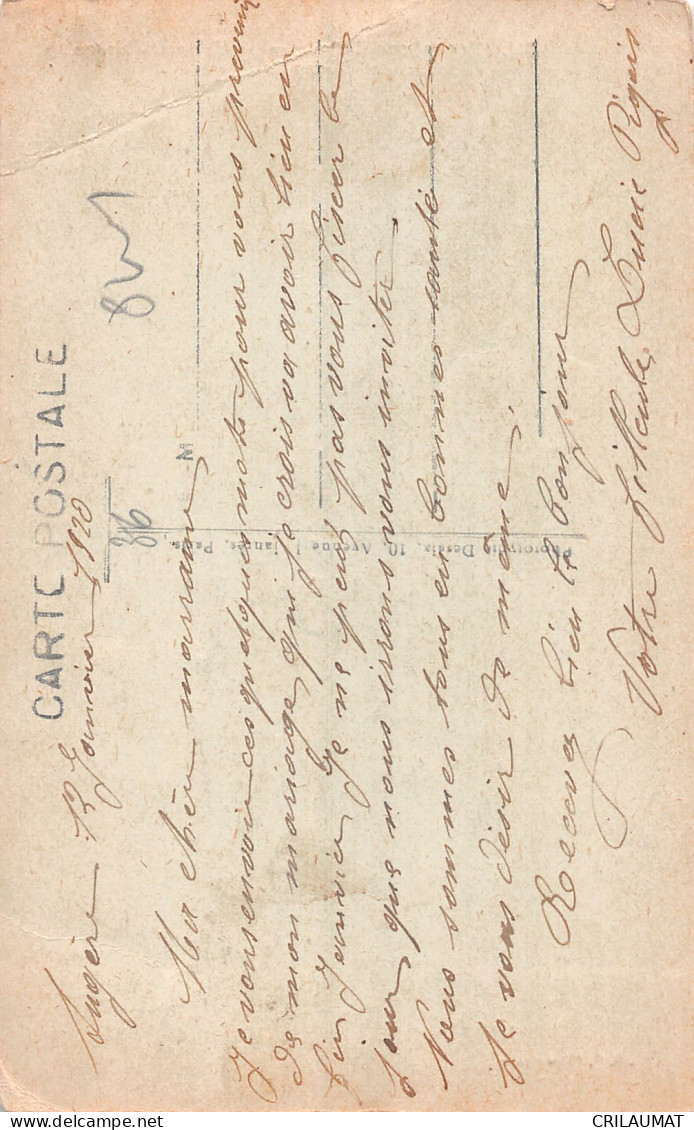 CARTE POSTALE
Janvier 1920
Ma chère marraine
Je vous envoie ces quelques mots pour vous prévenir
de mon mariage qui je crois va avoir lieu en
fin Janvier Je ne peux pas vous fixer le
jour que nous irrons vous inviter
Nous sommes tous en bonnes santé et
Je vous désir de même.
Recevez bien le bonjour
Votre filleule Lucie Régis
M
86
Phototypie Desaix, 10, Avenue
Paris
CRILAUMAT